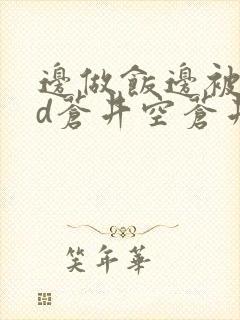 邊做飯邊被
d蒼井空蒼井
笑年華